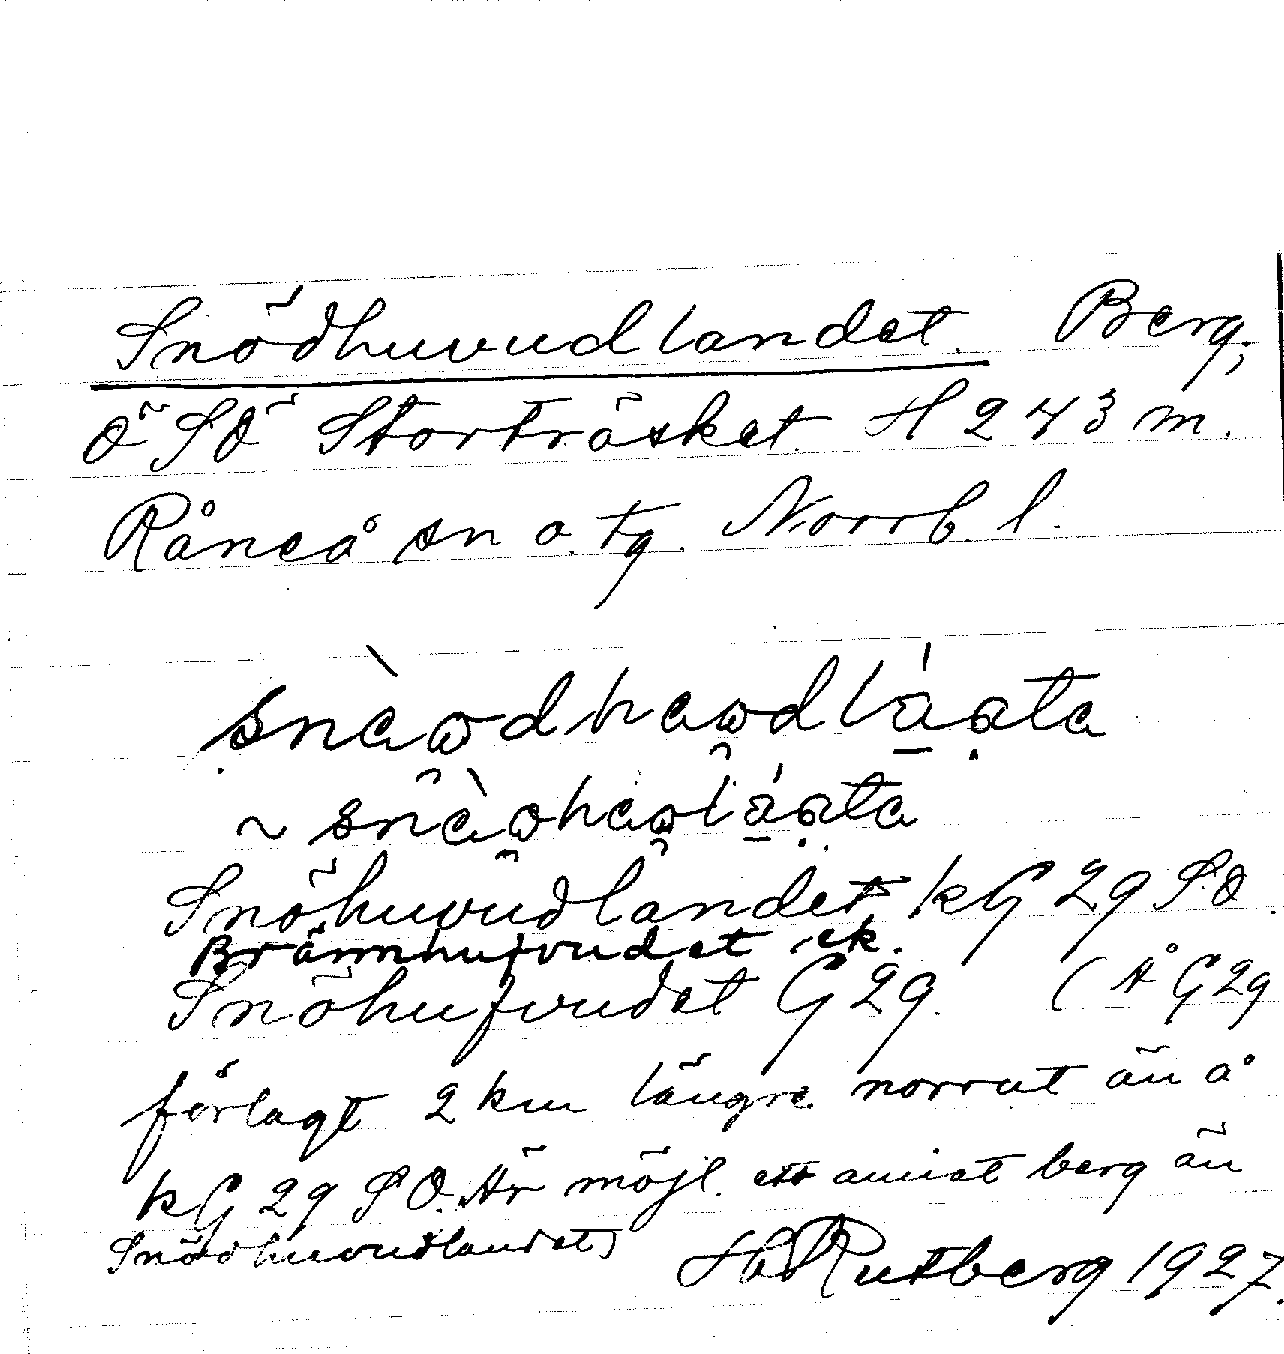 Snödhuvudlandet. Berg,
ÖSÖ Storträsket. H 243 m.
Råneå sn o. tg. Norrb. l.
Snöhuvudlandet kG 29 SO.
Brännhufvudet ek.
Snöhufvudet G 29. (Å G 29
förlagt 2 km längre norrut än å
kG 29 SO. Är möjl. ett annat berg än
Snödhuvudlandet)
H. Rutberg 1927.